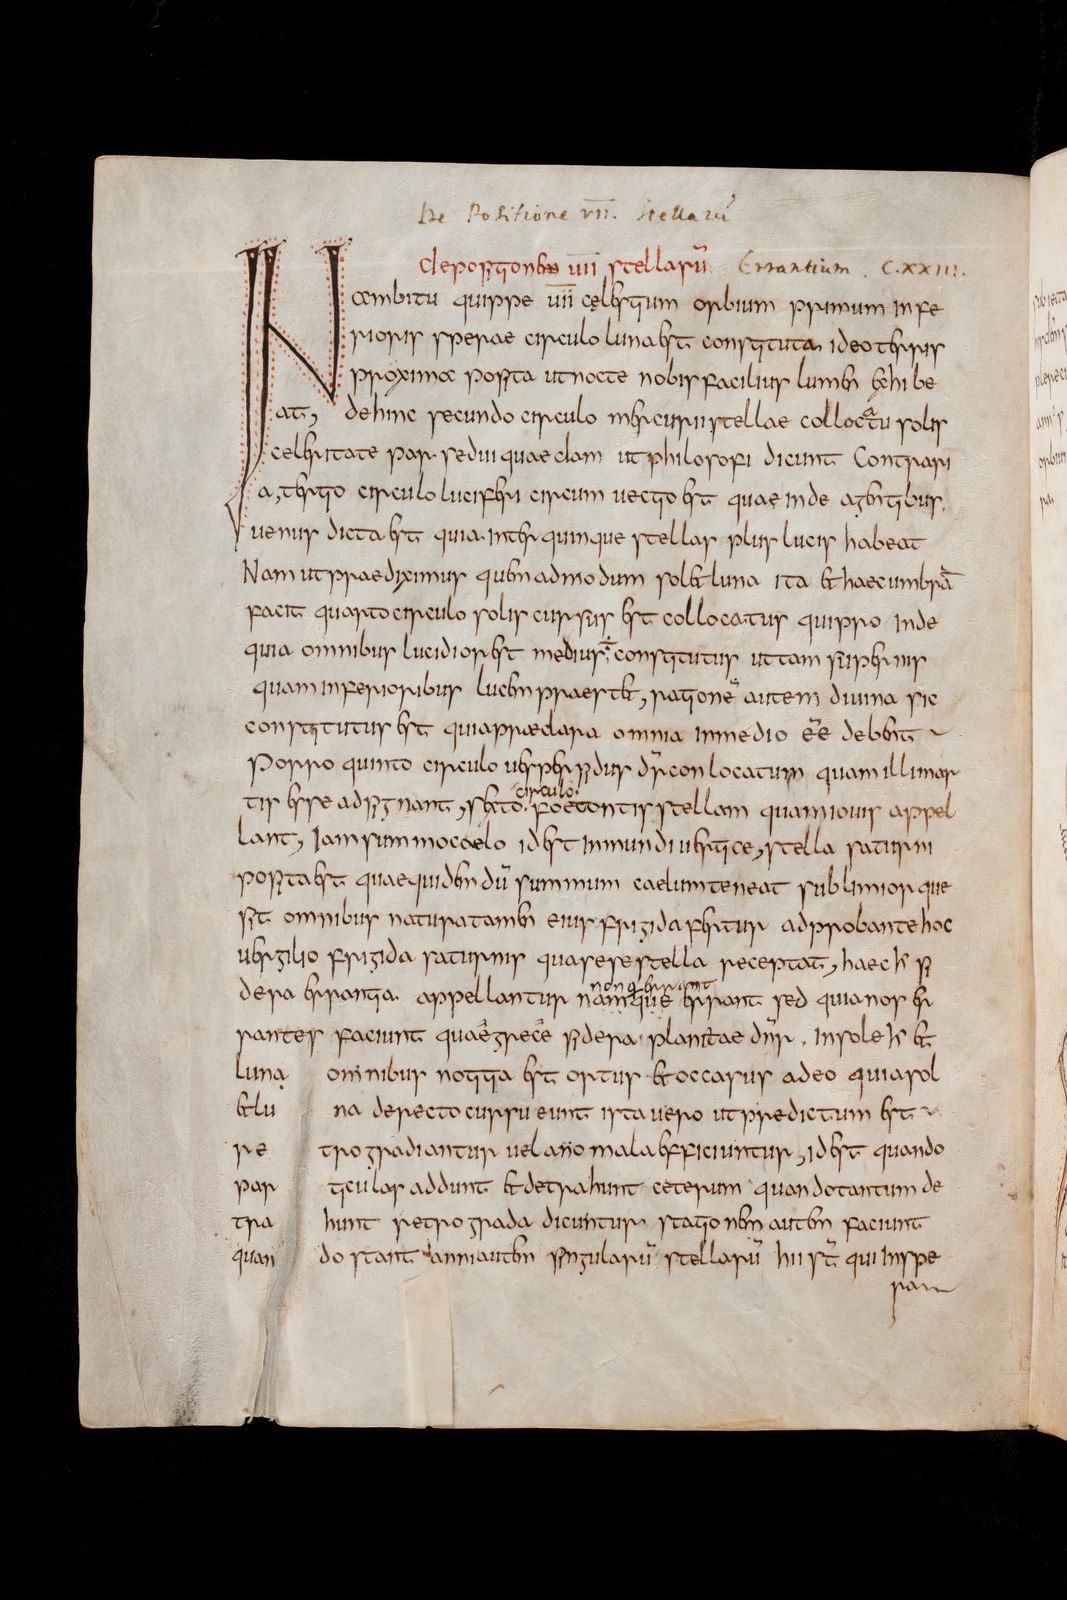 De Positione VII. Stellarū
De positionem VIII stellarū Errantium. C.XXIII.
N ambitu quippe VIII celestium orbium primum infe
rioris sperae circulo luna est constituta, ideo terris
proxima posita ut nocte nobis facilius lumen exhibe
at, dehinc secundo circulo mercurii stellae collocatu solis
celeritate par sed ui quaedam ut philosofi dicunt Contrari
a, tertio circulo luciferi circum uectio est quae inde a gentibus.
uenus dicta est quia inter quinque stellas plus lucis habeat
Nam ut praediximus quem ad modum sol & luna ita & haec umbrā
facit quarto circulo solis cursus est collocatus qui pro inde
quia omnibus lucidior est medius constitutus ut tam supernis
quam inferioribus lucem praest&, rationē autem diuina sic
constitutus est quia praeclara omnia in medio eē debent
Porro quinto circulo uesper sidus dr̄ conlocatum quam illi mar
tis esse adsignant, sexto circulo foetontis stellam quam iouis appel
lant, Iam summo caelo id est in mundi uertice, stella saturni
posita est quae quidem dū summum caelum teneat sublimior que
sit omnibus natura tamen eius frigida fertur adprobante hoc
uergilio frigida saturnis quas ese stella receptat, haec h si
dera errantia appellantur non q̄ errant namque errant sed quia nos er
rantes faciunt quaē grecē sidera planitae dnr. In sole h &
luna omnibus notiga est ortus & occasus adeo quia sol
& lu na derecto cursu eunt ista uero ut predictum est
re trogradiantur uel anomala efficiuntur, id est quando
par ticulas addunt & detrahunt ceterum quando tantum de
tra hunt retrograda dicuntur stationem autem faciunt
quan do stant anni autem singularū stellarū hii st̄ qui in spe
ram